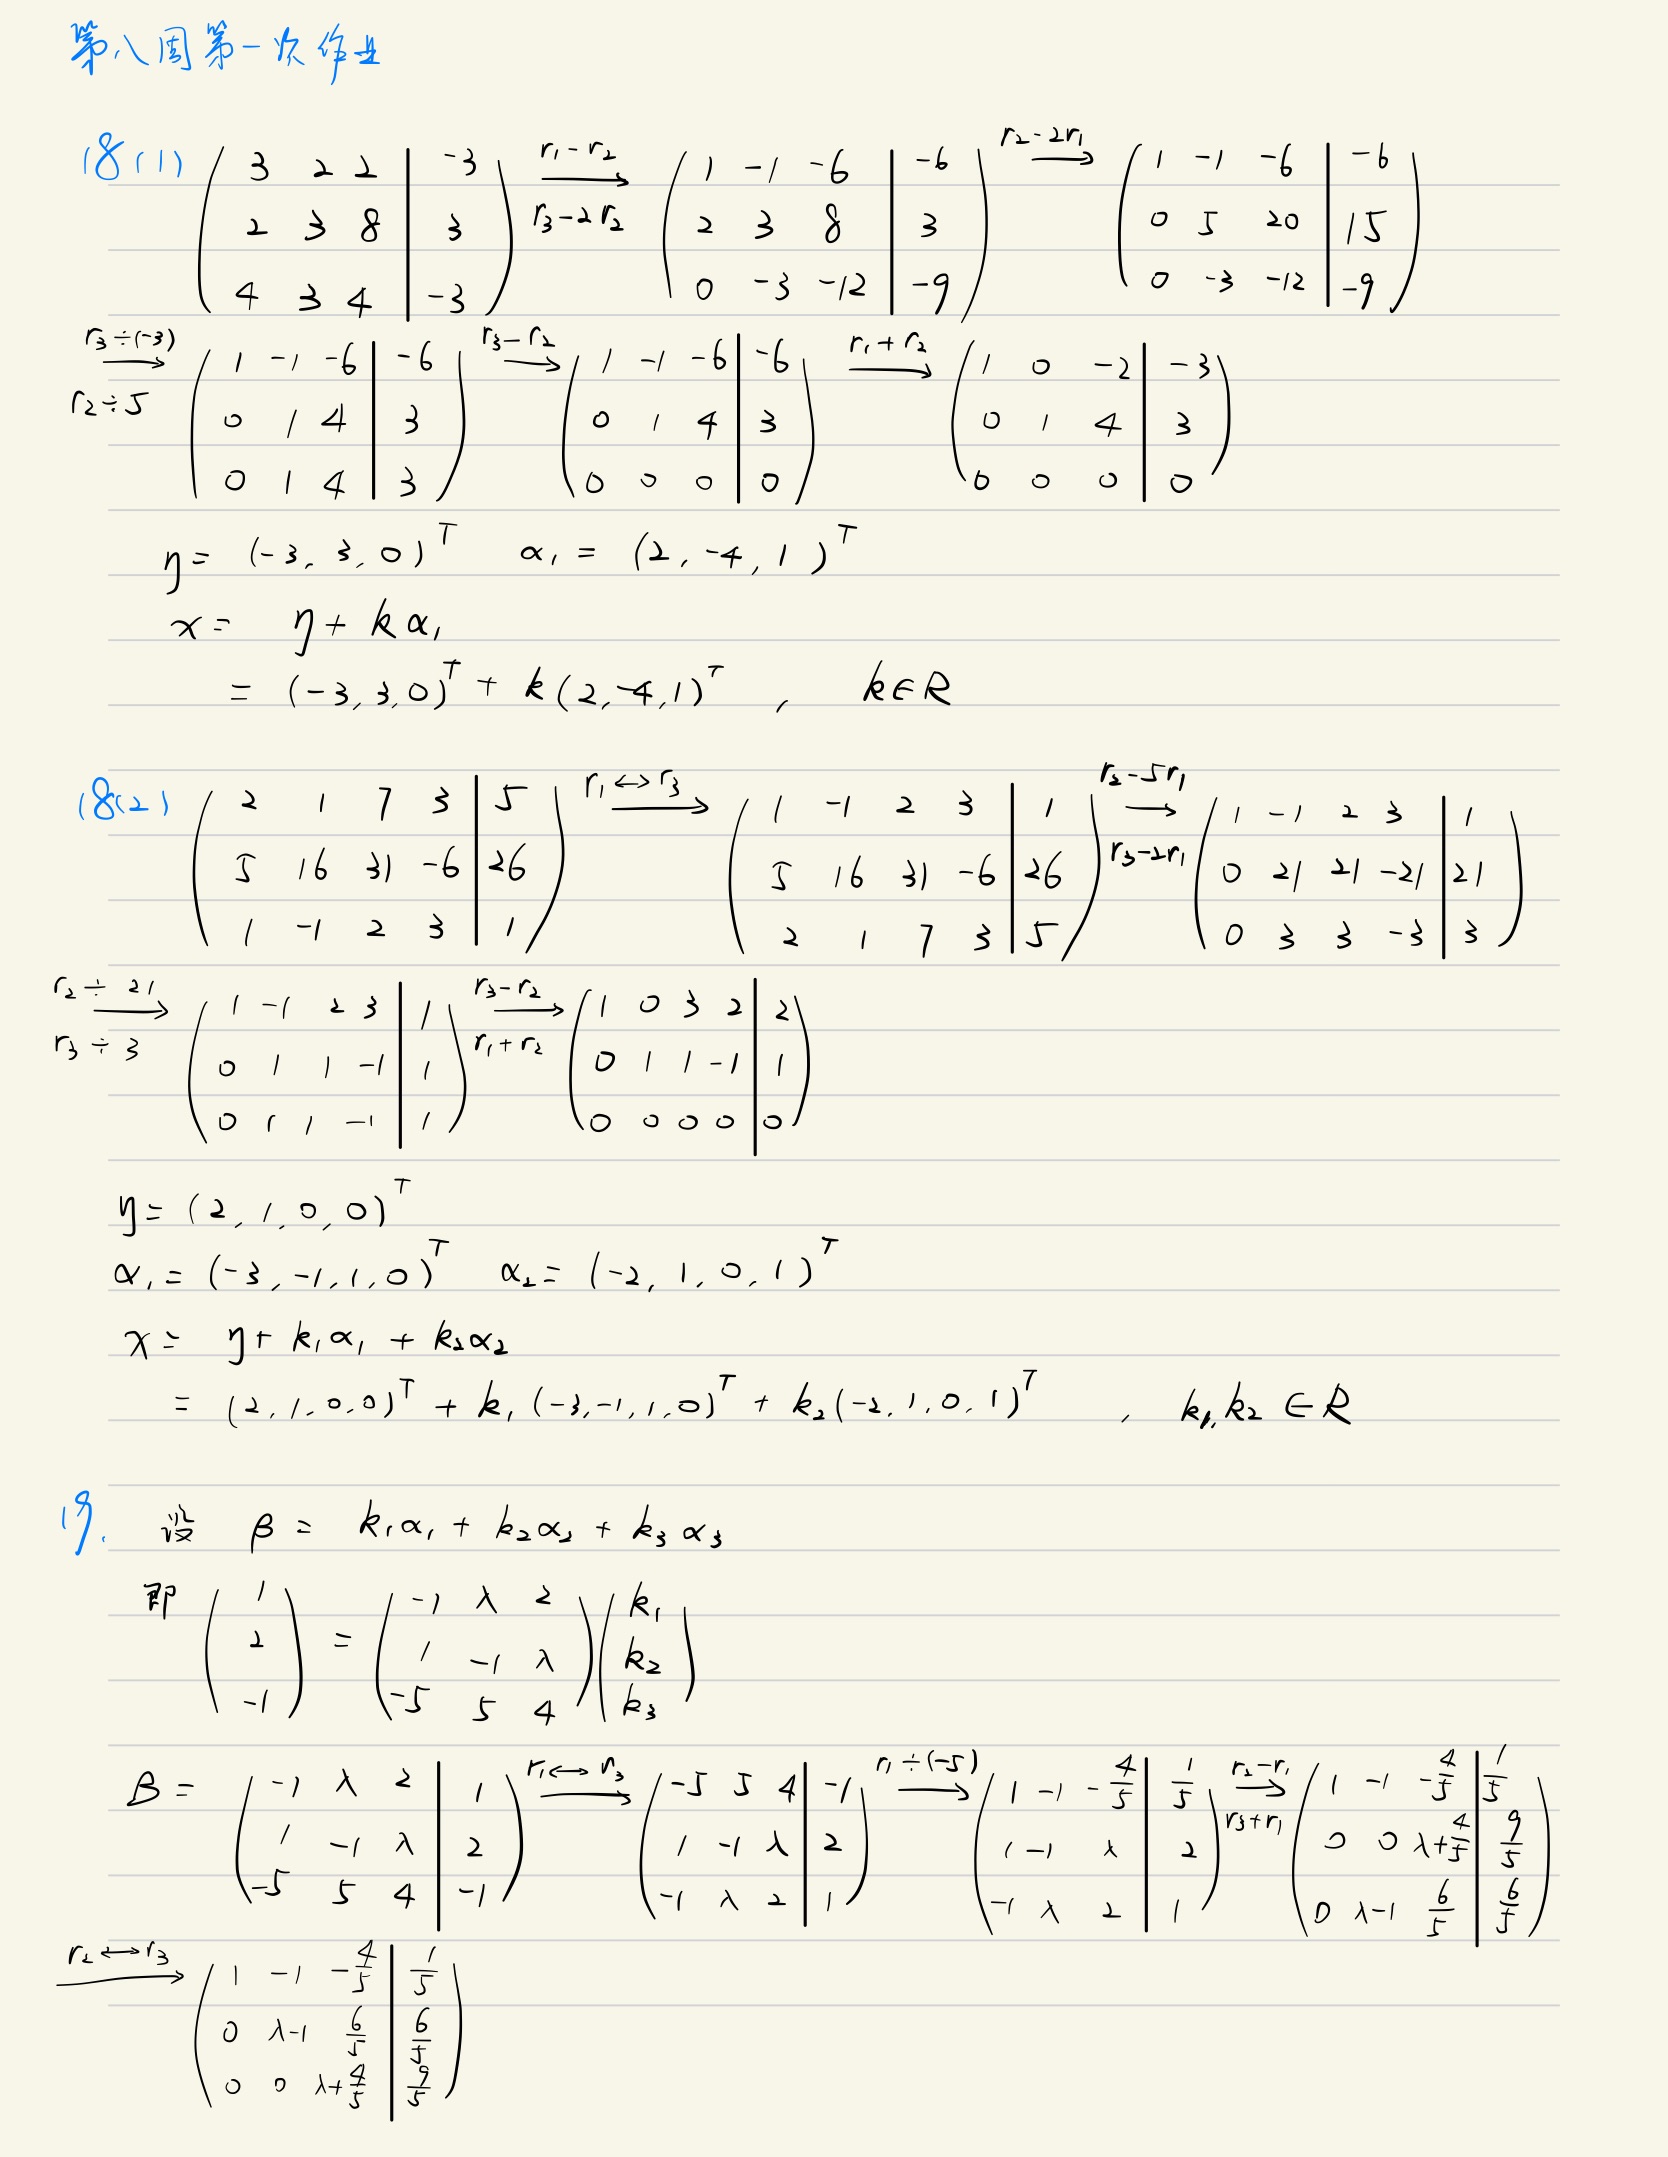 第八周第一次作业
18(1) ( 3 2 2 | -3 ; 2 3 8 | 3 ; 4 3 4 | -3 ) r₁-r₂ r₃-2r₂ → ( 1 -1 -6 | -6 ; 2 3 8 | 3 ; 0 -3 -12 | -9 ) r₂-2r₁ → ( 1 -1 -6 | -6 ; 0 5 20 | 15 ; 0 -3 -12 | -9 )
r₃÷(-3) r₂÷5 → ( 1 -1 -6 | -6 ; 0 1 4 | 3 ; 0 1 4 | 3 ) r₃-r₂ → ( 1 -1 -6 | -6 ; 0 1 4 | 3 ; 0 0 0 | 0 ) r₁+r₂ → ( 1 0 -2 | -3 ; 0 1 4 | 3 ; 0 0 0 | 0 )
η = (-3, 3, 0)ᵀ α₁ = (2, -4, 1)ᵀ
x = η + kα₁
= (-3, 3, 0)ᵀ + k(2, -4, 1)ᵀ , k∈R
18(2) ( 2 1 7 3 | 5 ; 5 16 31 -6 | 26 ; 1 -1 2 3 | 1 ) r₁↔r₃ → ( 1 -1 2 3 | 1 ; 5 16 31 -6 | 26 ; 2 1 7 3 | 5 ) r₂-5r₁ r₃-2r₁ → ( 1 -1 2 3 | 1 ; 0 21 21 -21 | 21 ; 0 3 3 -3 | 3 )
r₂÷21 r₃÷3 → ( 1 -1 2 3 | 1 ; 0 1 1 -1 | 1 ; 0 1 1 -1 | 1 ) r₃-r₂ r₁+r₂ → ( 1 0 3 2 | 2 ; 0 1 1 -1 | 1 ; 0 0 0 0 | 0 )
η = (2, 1, 0, 0)ᵀ
α₁ = (-3, -1, 1, 0)ᵀ α₂ = (-2, 1, 0, 1)ᵀ
x = η + k₁α₁ + k₂α₂
= (2, 1, 0, 0)ᵀ + k₁(-3, -1, 1, 0)ᵀ + k₂(-2, 1, 0, 1)ᵀ , k₁, k₂ ∈ R
19. 设 β = k₁α₁ + k₂α₂ + k₃α₃
即 ( 1 ; 2 ; -1 ) = ( -1 λ 2 ; 1 -1 λ ; -5 5 4 ) ( k₁ ; k₂ ; k₃ )
B = ( -1 λ 2 | 1 ; 1 -1 λ | 2 ; -5 5 4 | -1 ) r₁↔r₃ → ( -5 5 4 | -1 ; 1 -1 λ | 2 ; -1 λ 2 | 1 ) r₁÷(-5) → ( 1 -1 -4/5 | 1/5 ; 1 -1 λ | 2 ; -1 λ 2 | 1 ) r₂-r₁ r₃+r₁ → ( 1 -1 -4/5 | 1/5 ; 0 0 λ+4/5 | 9/5 ; 0 λ-1 6/5 | 6/5 )
r₂↔r₃ → ( 1 -1 -4/5 | 1/5 ; 0 λ-1 6/5 | 6/5 ; 0 0 λ+4/5 | 9/5 )